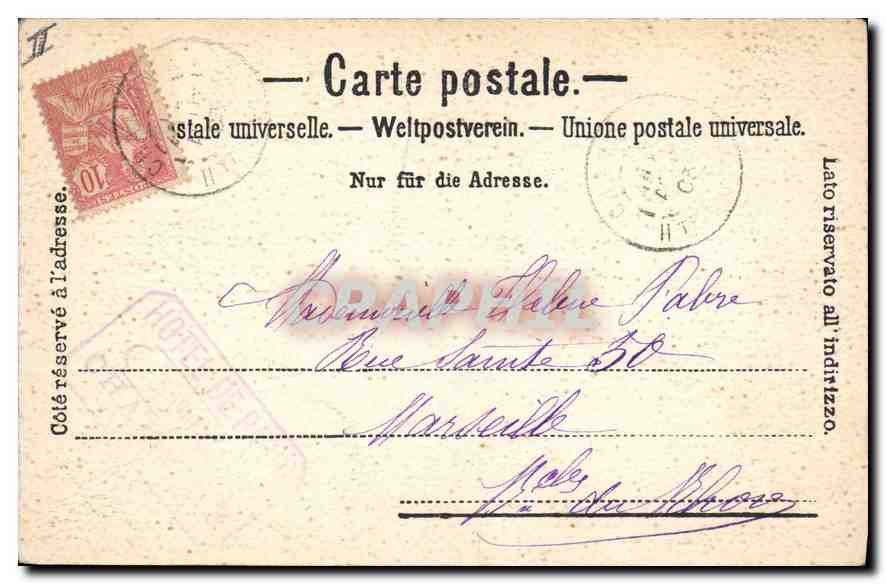 II
— Carte postale. —
stale universelle. — Weltpostverein. — Unione postale universale.
Nur für die Adresse.
10
Côté réservé à l'adresse.
Lato riservato all' indirizzo.
Mademoiselle Fabre
Rue Sainte 50
Marseille
Bches du Rhone
HOTEL DE
CPAPHIL